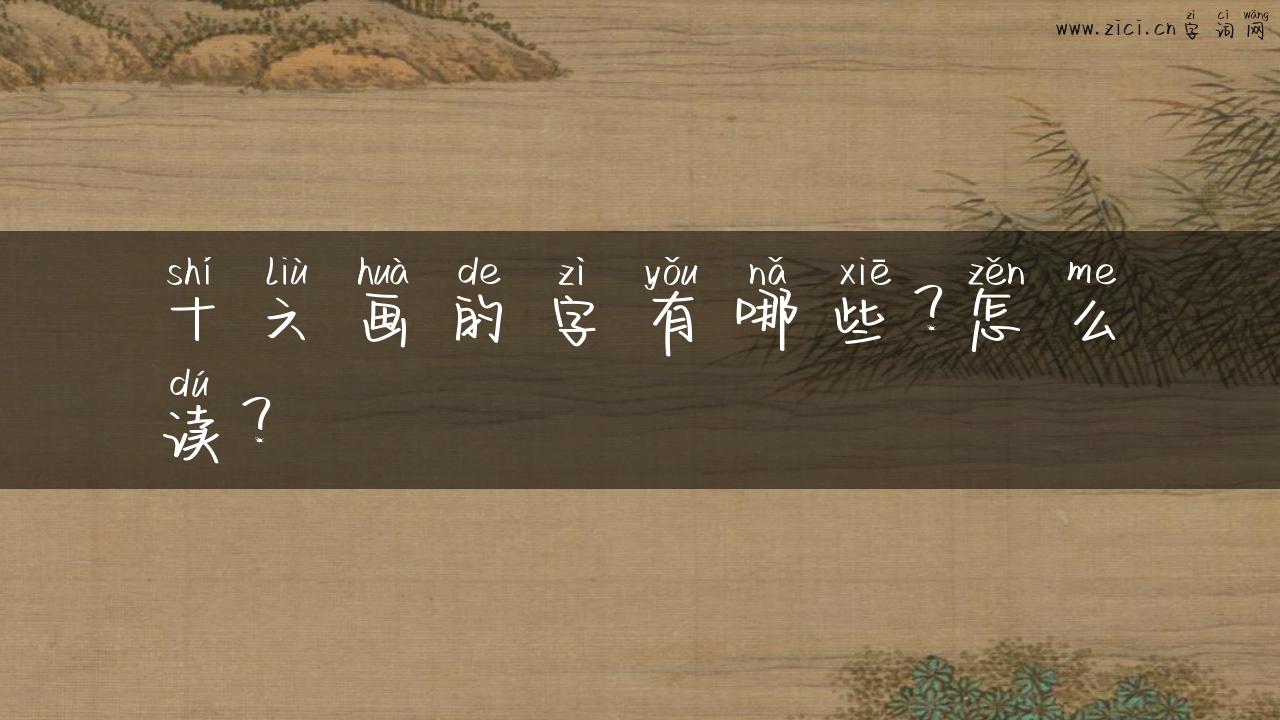 zì cí wǎng
www.zici.cn 字词网
shí liù huà de zì yǒu nǎ xiē zěn me
十六画的字有哪些?怎么
dú
读?